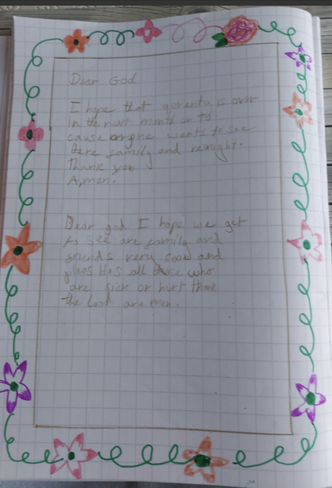 Dear God
I hope that is over
in the next month or to
cause wants to see
there family and
Thank you
Aman.
Dear god I hope we get
to see are family and
friends very soon and
bless all those who
are sick or hurt
the lost are men.